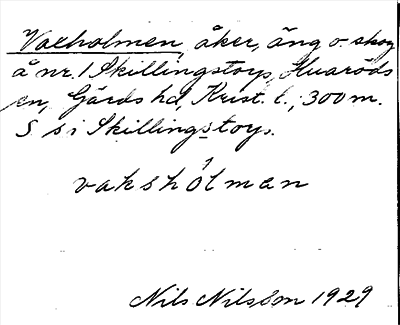 Vaxholmen, åker, äng o. skog
å nr. 1 Skillingstorp, Huaröds
sn, Gärds hd, Krist. l.; 300 m.
S s i Skillingstorp.
vakshólmen
Nils Nilsson 1929